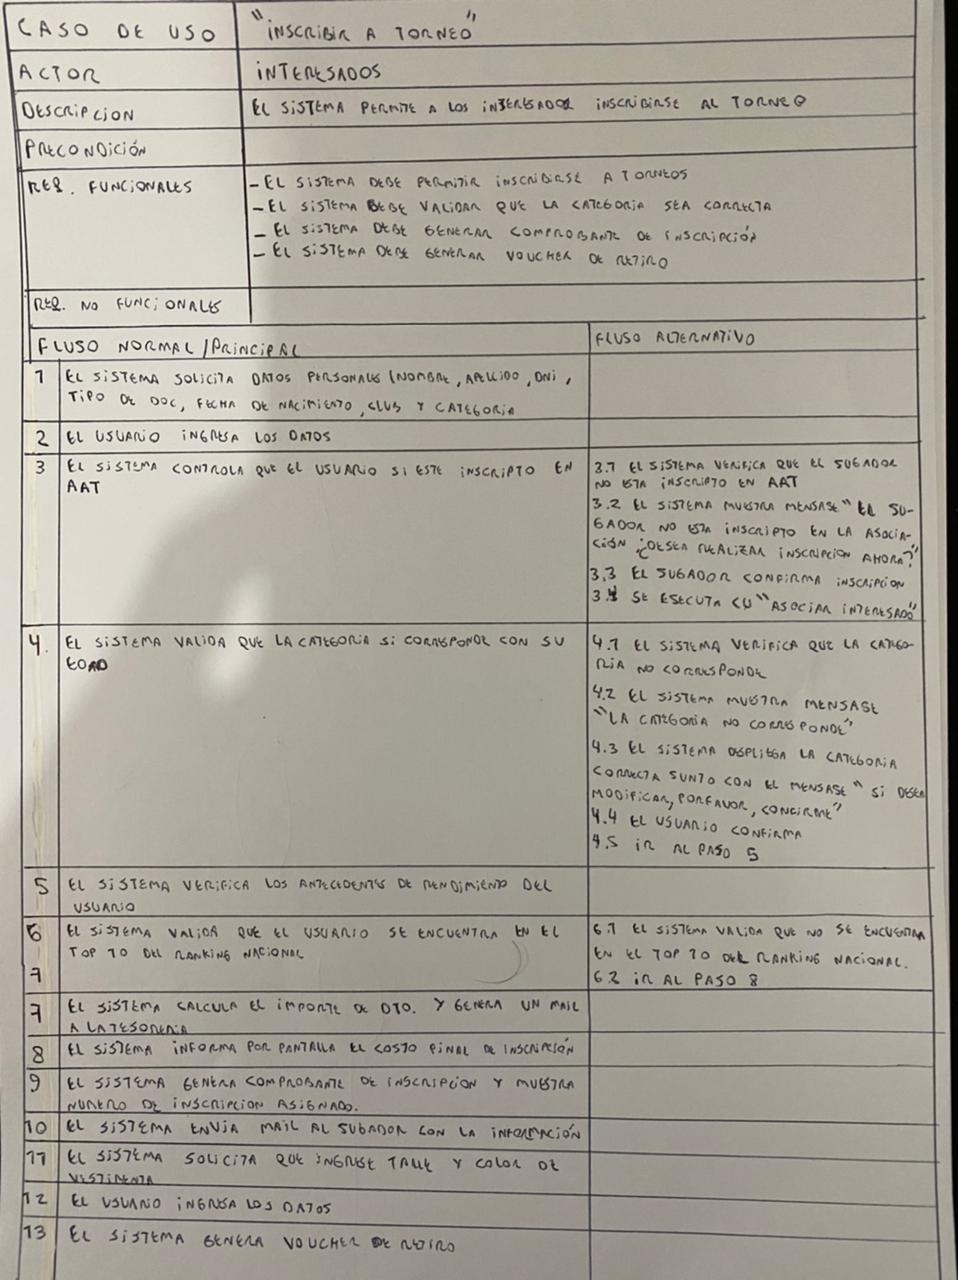 CASO DE USO "INSCRIBIR A TORNEO"
ACTOR INTERESADOS
DESCRIPCION EL SISTEMA PERMITE A LOS INTERESADOR INSCRIBIRSE AL TORNEO
PRECONDICIÓN
REQ. FUNCIONALES
- EL SISTEMA DEBE PERMITIR INSCRIBIRSE A TORNEOS
- EL SISTEMA DEBE VALIDAR QUE LA CATEGORIA SEA CORRECTA
- EL SISTEMA DEBE GENERAR COMPROBANTE DE INSCRIPCIÓN
- EL SISTEMA DEBE GENERAR VOUCHER DE RETIRO
REQ. NO FUNCIONALES
FLUJO NORMAL/PRINCIPAL
FLUJO ALTERNATIVO
1 EL SISTEMA SOLICITA DATOS PERSONALES (NOMBRE, APELLIDO, DNI,
TIPO DE DOC, FECHA DE NACIMIENTO, CLUB Y CATEGORIA
2 EL USUARIO INGRESA LOS DATOS
3 EL SISTEMA CONTROLA QUE EL USUARIO SI ESTE INSCRIPTO EN
AAT
3.1 EL SISTEMA VERIFICA QUE EL JUGADOR
NO ESTA INSCRIPTO EN AAT
3.2 EL SISTEMA MUESTRA MENSAJE "EL JU-
GADOR NO ESTA INSCRIPTO EN LA ASOCIA-
CIÓN ¿DESEA REALIZAR INSCRIPCION AHORA?"
3.3 EL JUGADOR CONFIRMA INSCRIPCION
3.4 SE EJECUTA CU "ASOCIAR INTERESADO"
4. EL SISTEMA VALIDA QUE LA CATEGORIA SI CORRESPONDE CON SU
EDAD
4.1 EL SISTEMA VERIFICA QUE LA CATEGO-
RIA NO CORRESPONDE
4.2 EL SISTEMA MUESTRA MENSAJE
"LA CATEGORIA NO CORRESPONDE"
4.3 EL SISTEMA DESPLIEGA LA CATEGORIA
CORRECTA JUNTO CON EL MENSAJE "SI DESEA
MODIFICAR, POR FAVOR, CONFIRME"
4.4 EL USUARIO CONFIRMA
4.5 IR AL PASO 5
5 EL SISTEMA VERIFICA LOS ANTECEDENTES DE RENDIMIENTO DEL
USUARIO
6 EL SISTEMA VALIDA QUE EL USUARIO SE ENCUENTRA EN EL
TOP 10 DEL RANKING NACIONAL
7
6.1 EL SISTEMA VALIDA QUE NO SE ENCUENTRA
EN EL TOP 10 DEL RANKING NACIONAL.
6.2 IR AL PASO 8
7 EL SISTEMA CALCULA EL IMPORTE DE DTO. Y GENERA UN MAIL
A LA TESORERIA
8 EL SISTEMA INFORMA POR PANTALLA EL COSTO FINAL DE INSCRIPCIÓN
9 EL SISTEMA GENERA COMPROBANTE DE INSCRIPCION Y MUESTRA
NUMERO DE INSCRIPCION ASIGNADO.
10 EL SISTEMA ENVIA MAIL AL JUGADOR CON LA INFORMACIÓN
11 EL SISTEMA SOLICITA QUE INGRESE TALLE Y COLOR DE
VESTIMENTA
12 EL USUARIO INGRESA LOS DATOS
13 EL SISTEMA GENERA VOUCHER DE RETIRO